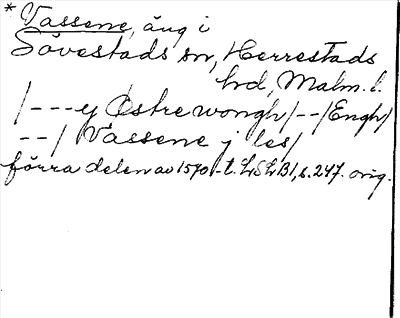 * Vassene, äng i
Sövestads sn, Herrestads
hd, Malm. l.
/---y Østre wongh/--/Engh/
--/ Vassene j les/
förra delen av 1570-t. LSLB1, s. 247. orig.